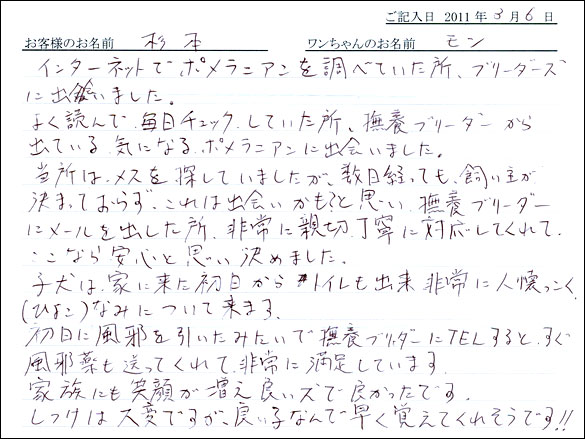 ご記入日 2011年3月6日
お客様のお名前 杉本 ワンちゃんのお名前 モン
インターネットでポメラニアンを調べていた所、ブリーダーズ
に出会いました。
よく読んで毎日チェックしていた所、撫養ブリーダーから
出ている気になるポメラニアンに出会いました。
当所は、メスを探していましたが、数日経っても、飼い主が
決まっておらず、これは出会いかも?と思い、撫養ブリーダー
にメールを出した所、非常に親切、丁寧に対応してくれて、
ここなら安心と思い決めました。
子犬は、家に来た初日からトイレも出来、非常に人懐っこく、
(ひよこ)なみについて来ます。
初日に風邪を引いたみたいで撫養ブリーダーにTELすると、すぐ
風邪薬も送ってくれて、非常に満足しています。
家族にも笑顔が増え良い犬で良かったです。
しつけは大変ですが、良い子なんで早く覚えてくれそうです!!